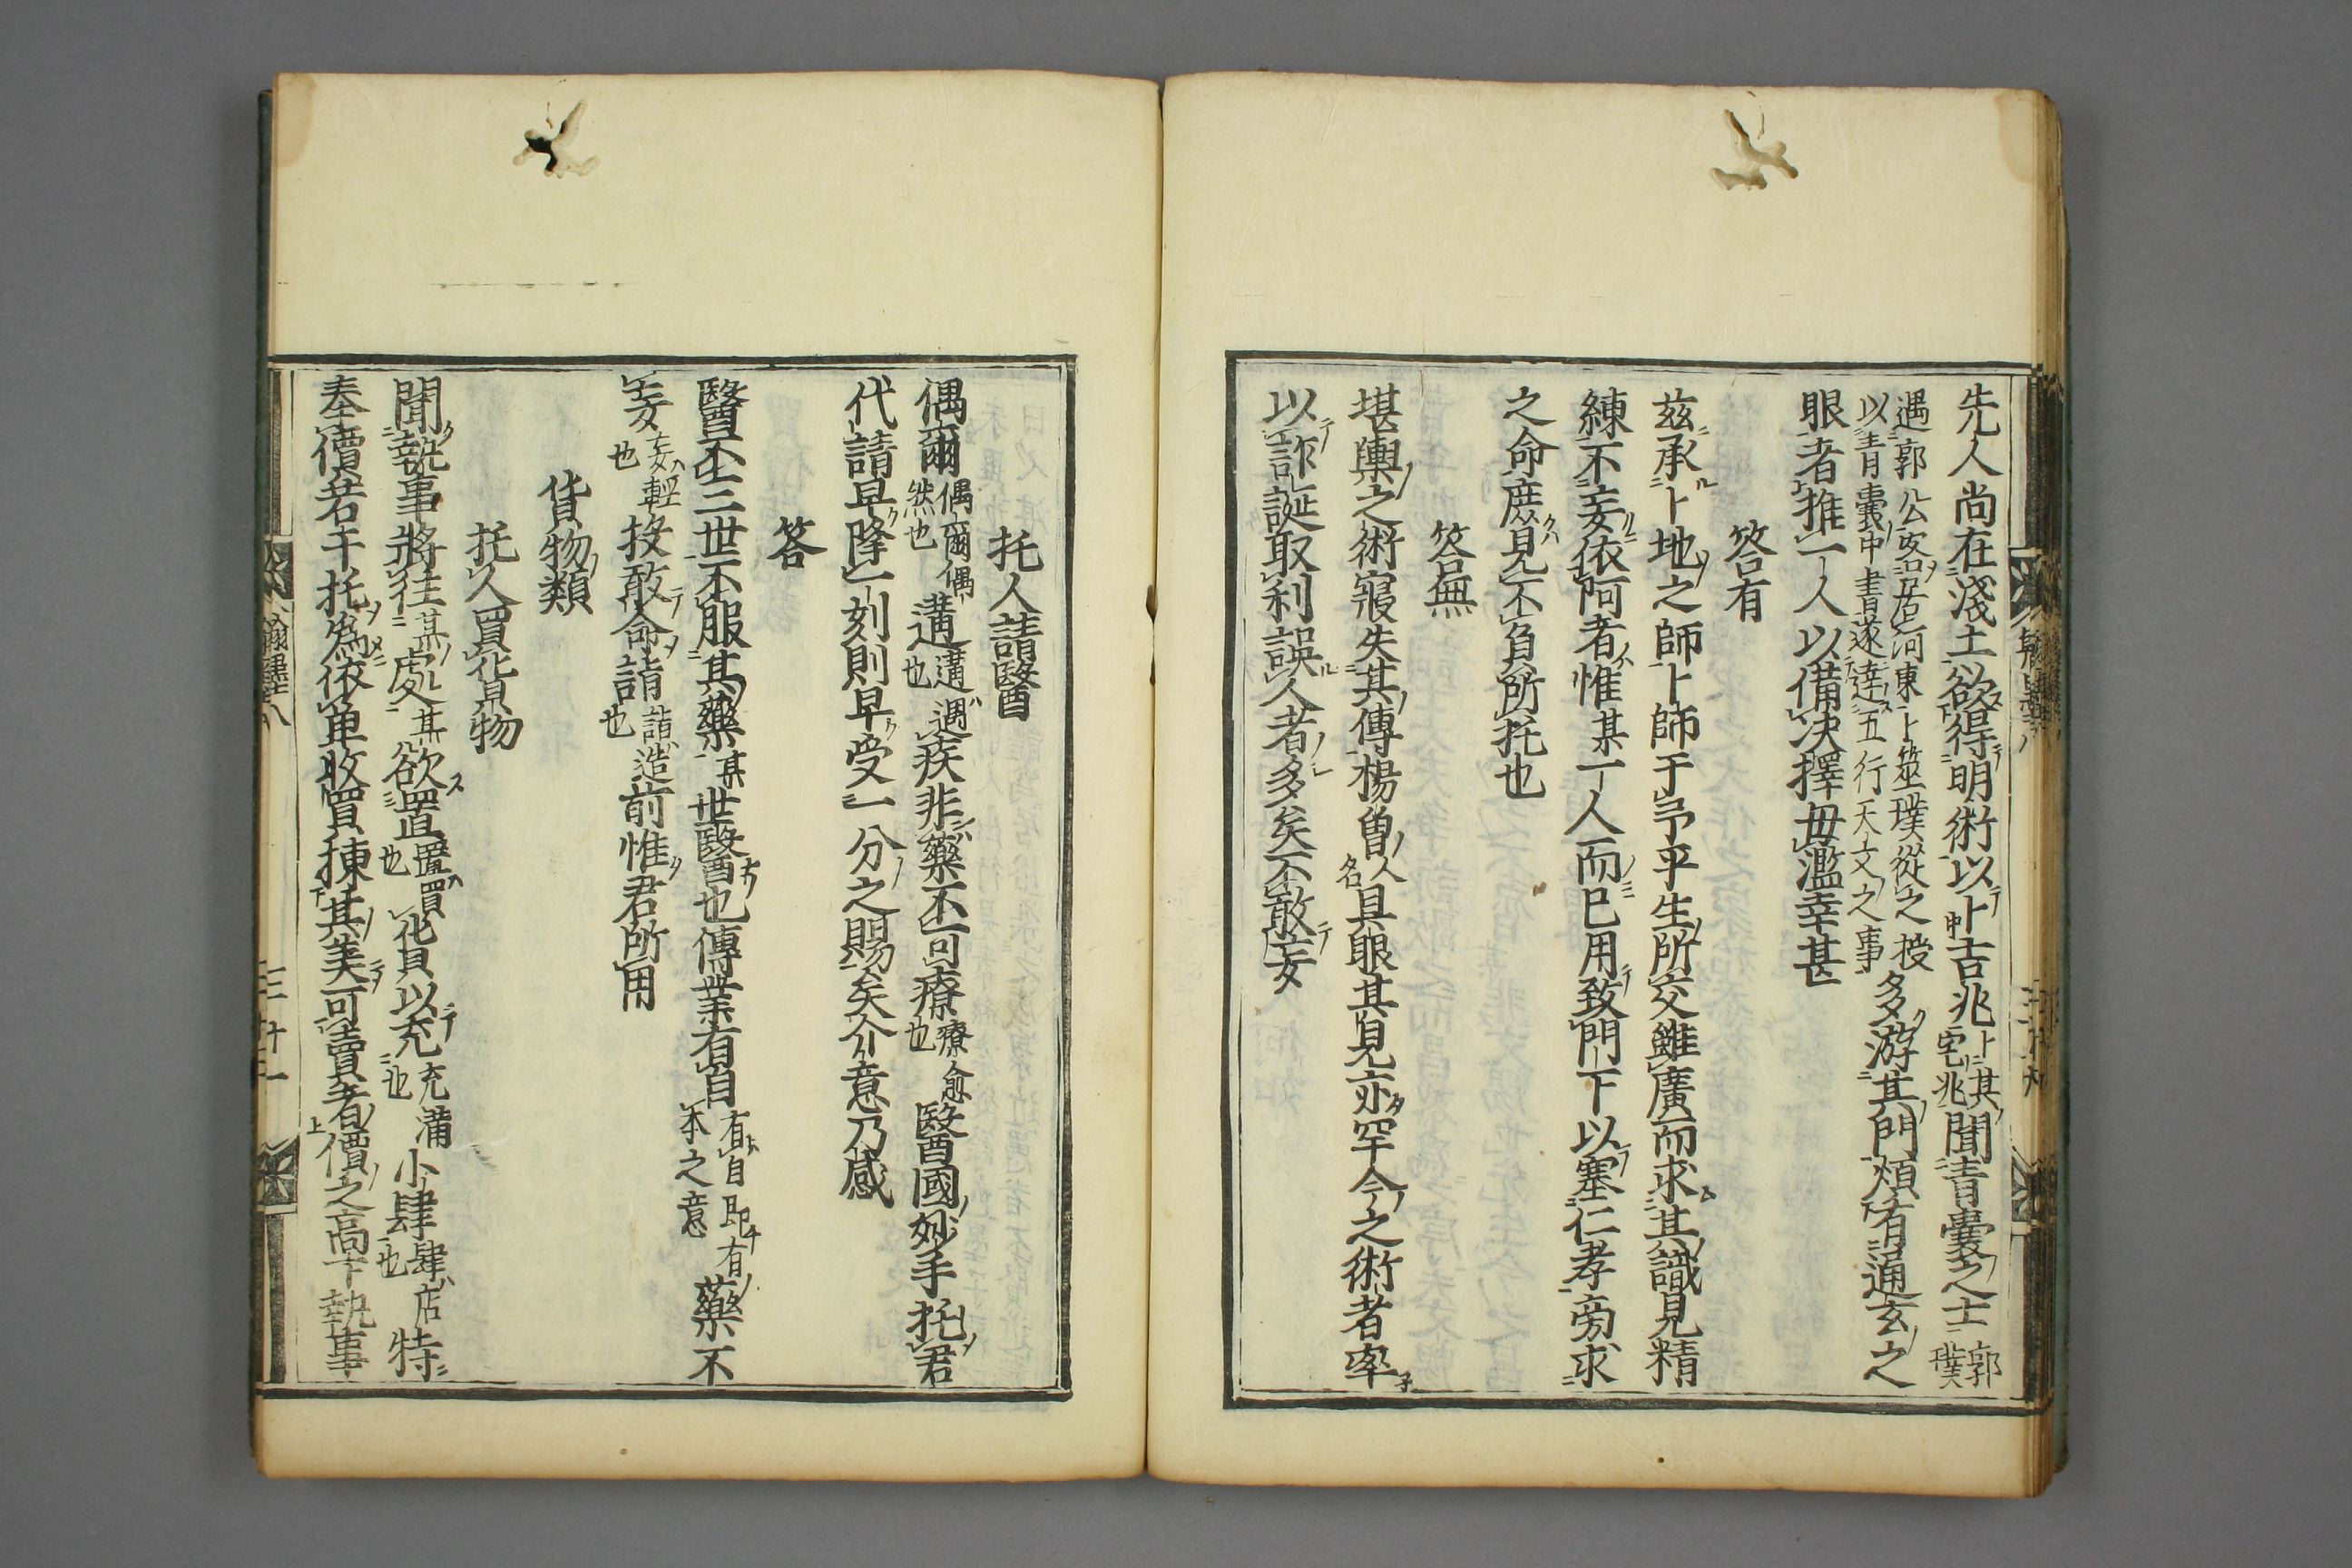 先人尚在淺土欲得明術以卜吉兆卜其宅兆聞青囊之士郭璞
遇郭公客居河東卜筮璞從之授以青囊中書遂達五行天文之事多游其門煩有通玄之
眼者推一人以備决擇毋濫幸甚
答有
茲承卜地之師卜師于予乎生所交雖廣而求其識見精
練不妄依阿者惟某一人而已用致門下以塞仁孝旁求
之命庶見不負所托也
答無
堪輿之術寢失其傳楊曾人名具眼其見亦罕今之術者率
以詐誕取利誤人者多矣不敢妄
托人請醫
偶爾偶爾偶然也遘遘遇也疾非藥不可療療愈也醫國妙手托君
代請早降一刻則早受一分之賜矣介意乃感
答
醫不三世不服其藥某世醫也傳業有自有自即有本之意藥不
妄妄輕也投敢命請詣造也前惟君所用
貨物類
托人買貨物
聞執事將往某處某欲置置買也貨以充充滿也小肆肆店也特
奉價若干托為依單收買揀其美可賣者價之高下執事
翰墨八
三十一